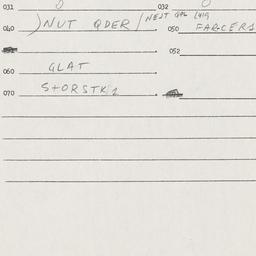 031 0 032 0
040 )NUT QDER / NEJT GAL 050 FARGERS
052
060 GLAT
070 STORSTK 2